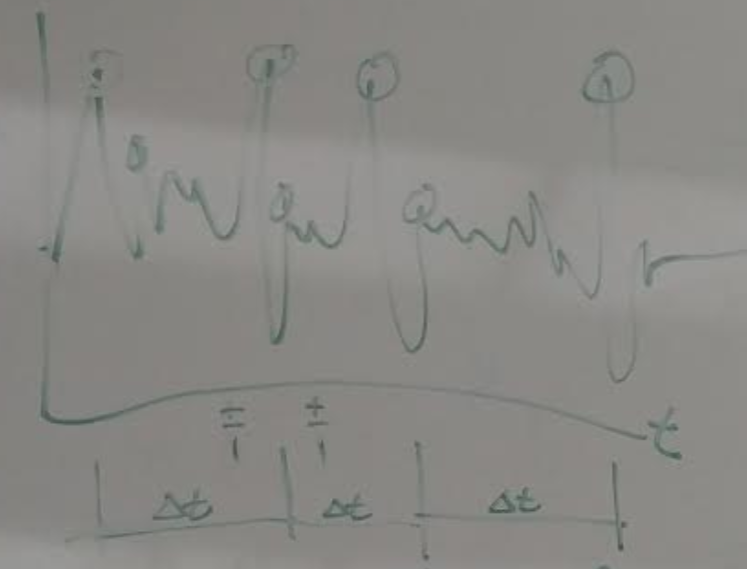 t
Δt Δt Δt